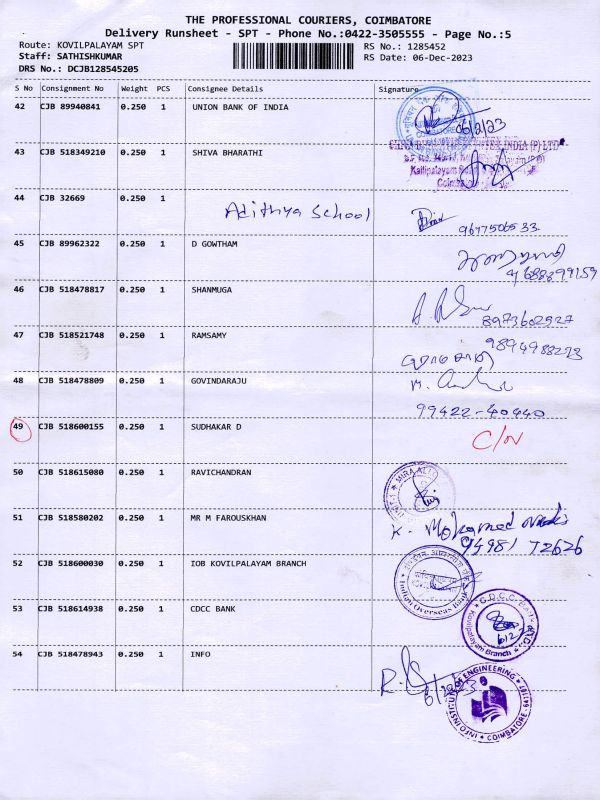 THE PROFESSIONAL COURIERS, COIMBATORE
Delivery Runsheet - SPT - Phone No.:0422-3505555 - Page No.:5
Route: KOVILPALAYAM SPT RS No.: 1285452
Staff: SATHISHKUMAR RS Date: 06-Dec-2023
DRS No.: DCJB128545205
S No Consignment No Weight PCS Consignee Details Signature
42 CJB 89940841 0.250 1 UNION BANK OF INDIA
43 CJB 518349210 0.250 1 SHIVA BHARATHI
44 CJB 32669 0.250 1 Adithya School
9677506533
45 CJB 89962322 0.250 1 D GOWTHAM
46 CJB 518478817 0.250 1 SHANMUGA
8973602927
47 CJB 518521748 0.250 1 RAMSAMY
48 CJB 518478809 0.250 1 GOVINDARAJU
99422-40440
49 CJB 518600155 0.250 1 SUDHAKAR D C/N
50 CJB 518615080 0.250 1 RAVICHANDRAN
51 CJB 518580202 0.250 1 MR M FAROUSKHAN K. Mohamed
94981 72626
52 CJB 518600030 0.250 1 IOB KOVILPALAYAM BRANCH
Indian Overseas Bank
53 CJB 518614938 0.250 1 CDCC BANK
Kovilpalayam Branch
54 CJB 518478943 0.250 1 INFO
INFO INSTITUTE OF ENGINEERING
COIMBATORE - 641107